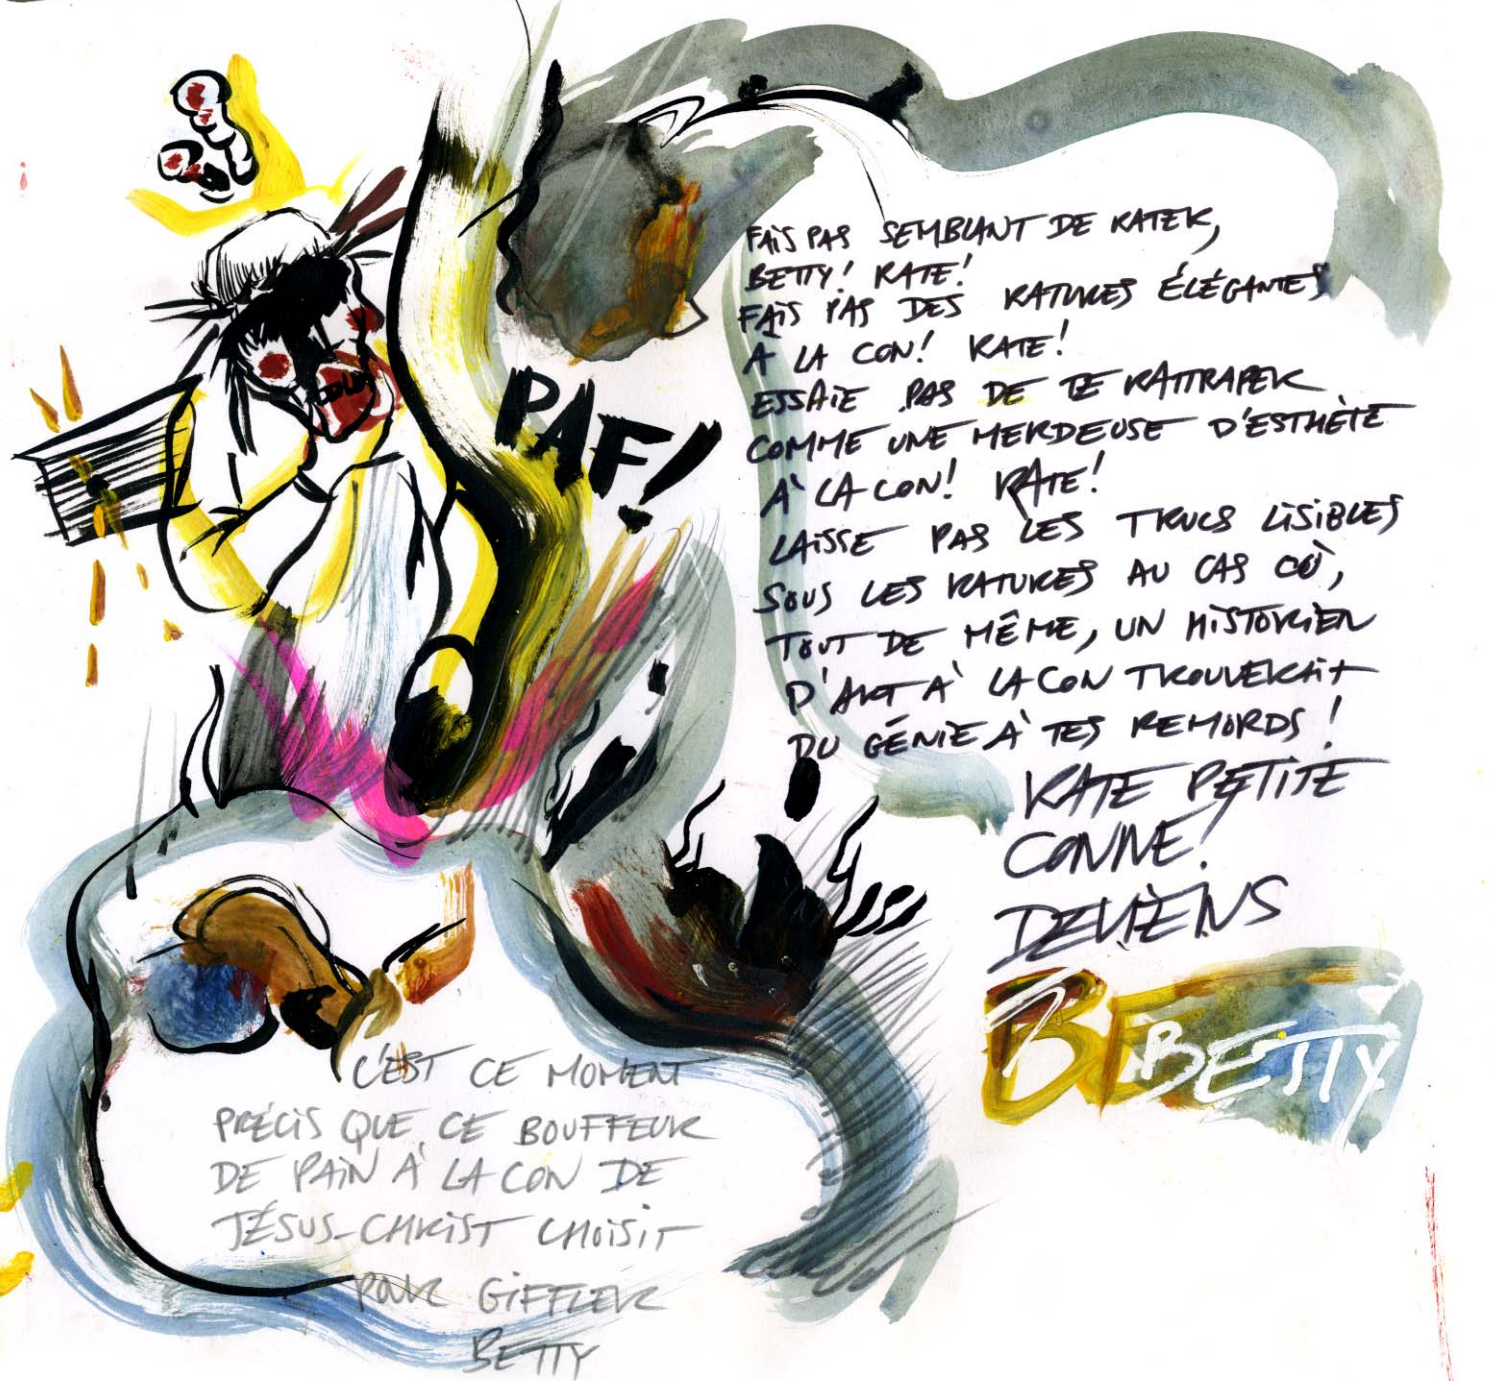 PAF!
FAIS PAS SEMBLANT DE RATER,
BETTY! RATE!
FAIS PAS DES RATURES ÉLÉGANTES
À LA CON! RATE!
ESSAIE PAS DE TE RATTRAPER
COMME UNE MERDEUSE D'ESTHÈTE
À LA CON! RATE!
LAISSE PAS LES TRUCS LISIBLES
SOUS LES RATURES AU CAS OÙ,
TOUT DE MÊME, UN HISTORIEN
D'ART À LA CON TROUVERAIT
DU GÉNIE À TES REMORDS!
RATE PETITE
CONNE!
DEVIENS
BE BETTY
C'EST CE MOMENT
PRÉCIS QUE CE BOUFFEUR
DE PAIN À LA CON DE
JÉSUS-CHRIST CHOISIT
POUR GIFFLER
BETTY